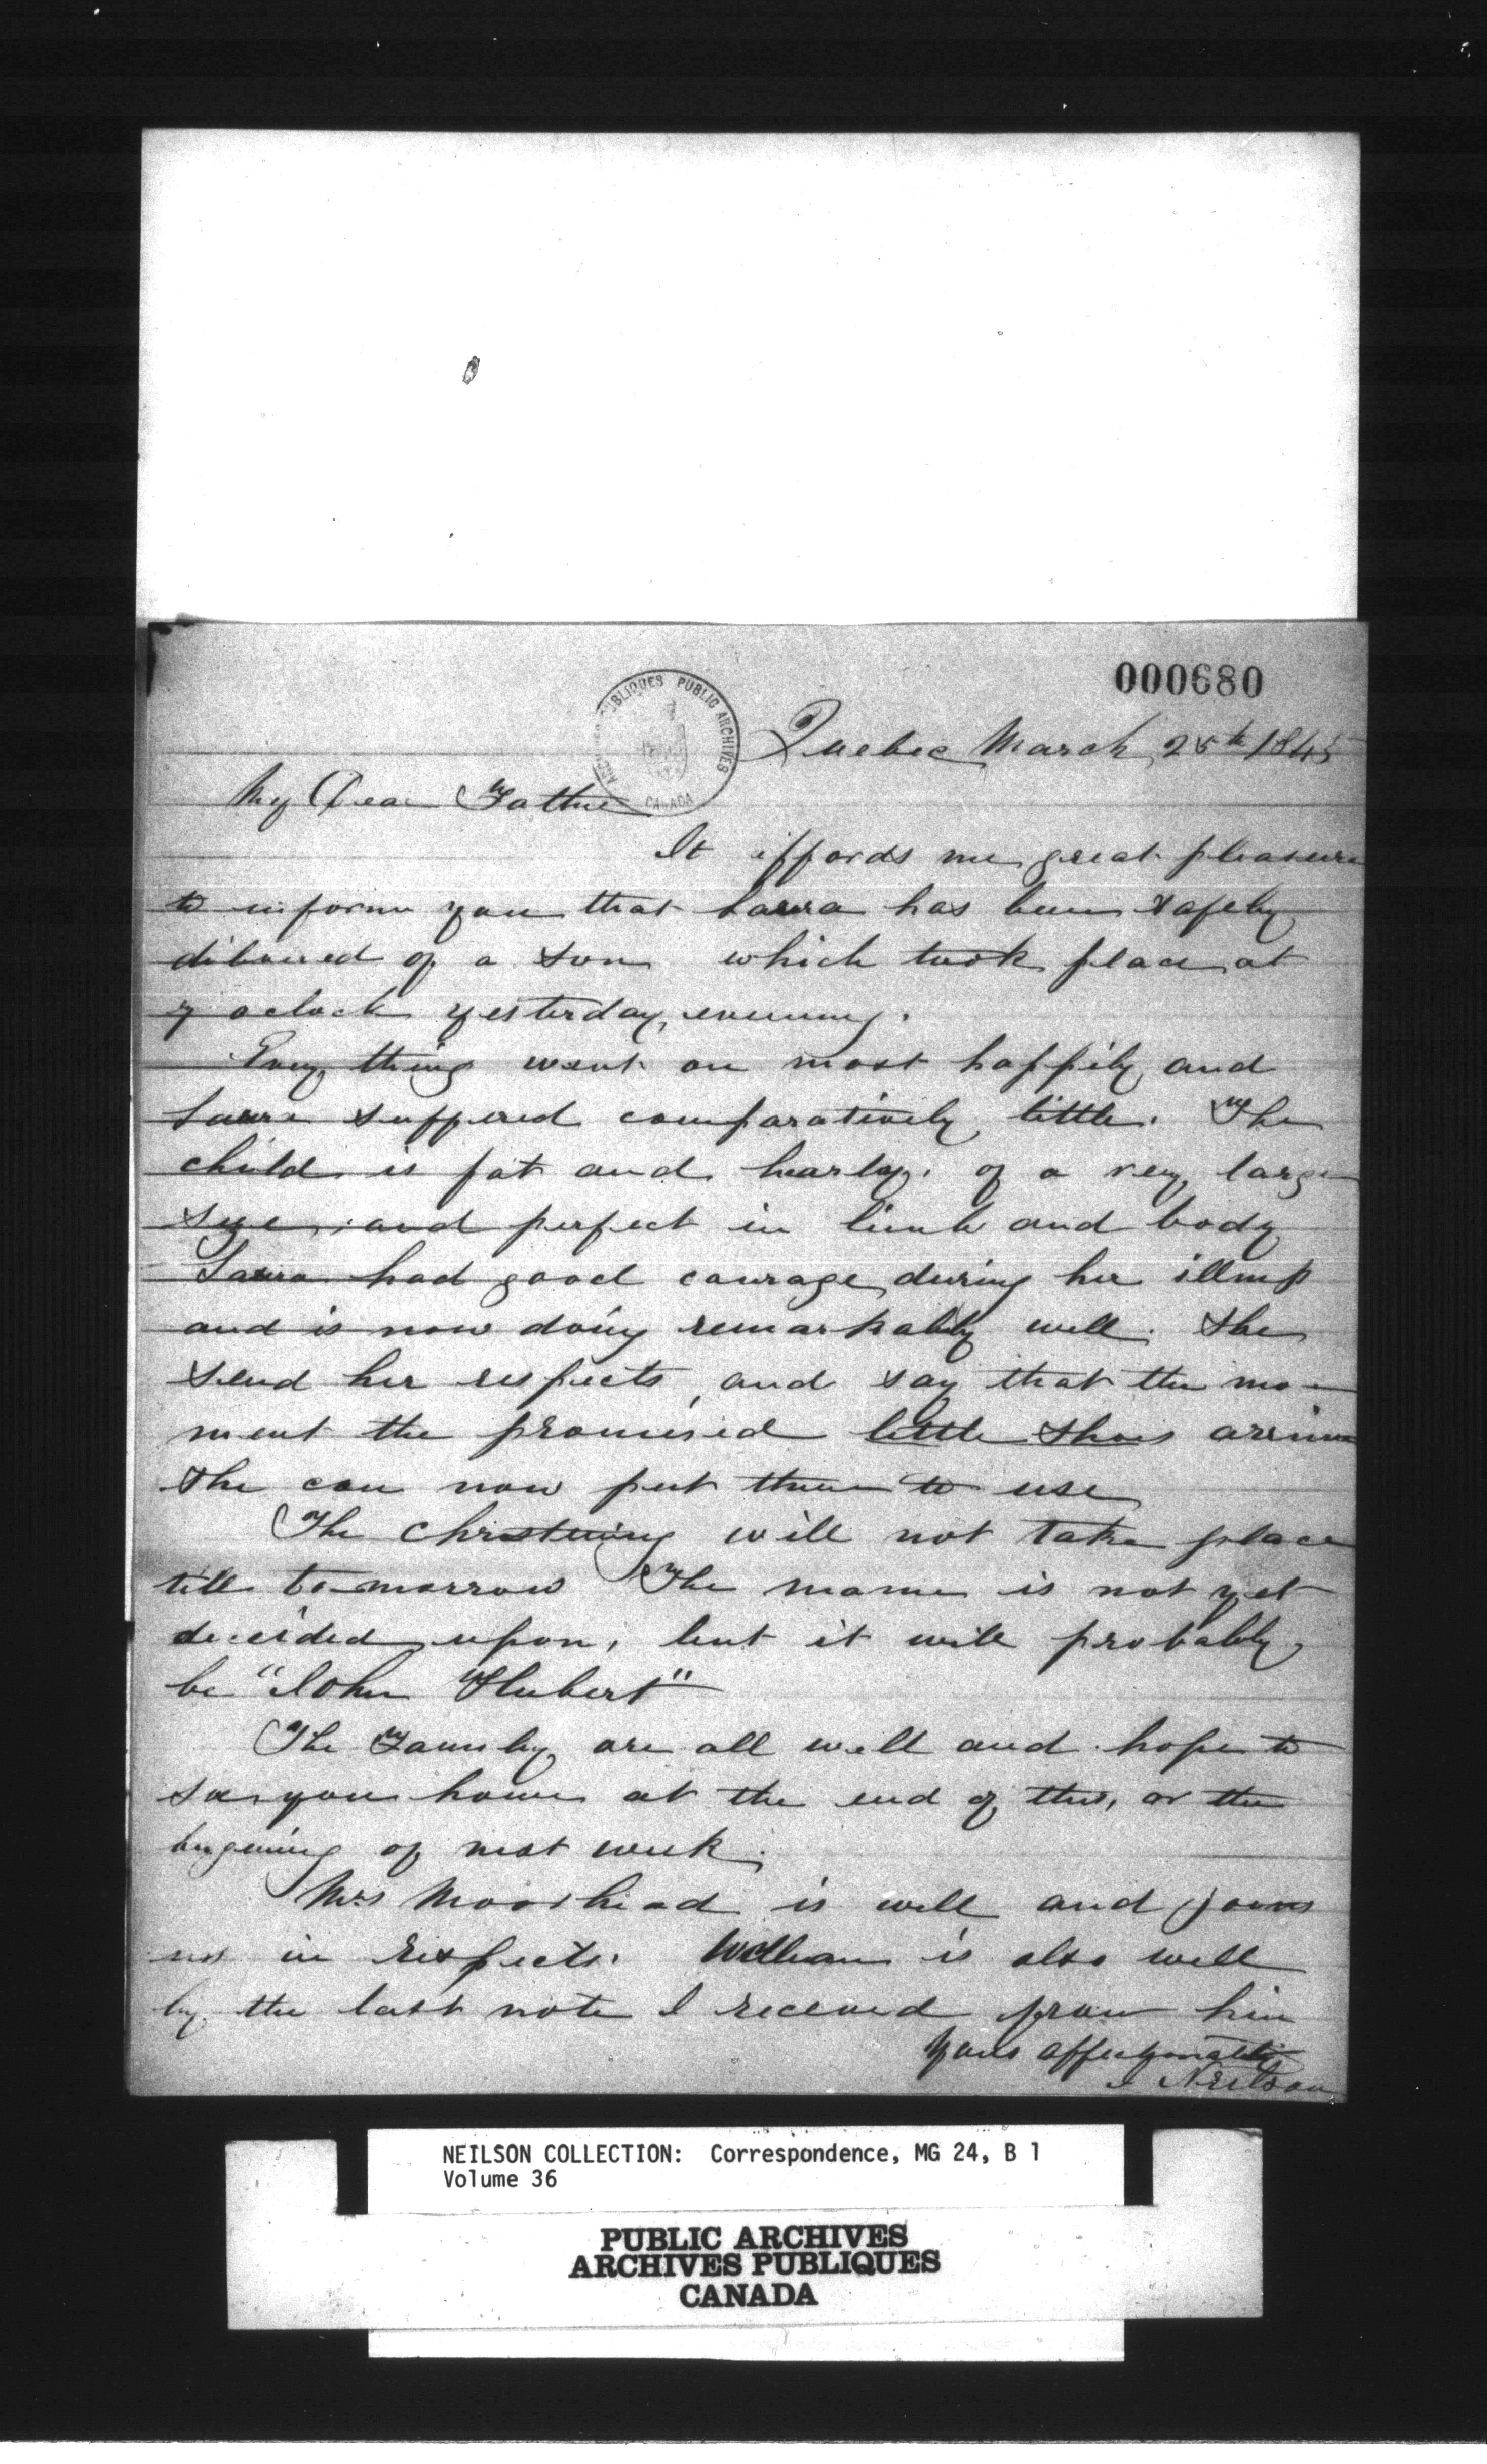 000680
ARCHIVES PUBLIQUES PUBLIC ARCHIVES
CANADA
Quebec March 25th 1845
My Dear Father
It affords me great pleasure
to inform you that Laura has been safely
dilivered of a son which took place at
7 oclock yesterday evening.
Every thing went on most happily and
Laura suffered comparatively little. The
child is fat and hearty. of a very large
size, and perfect in limb and body
Laura had good courage during her illness
and is now doing remarkably well. She
send her respects, and say that the mo-
ment the promised little shoes arrive
she can now put them to use
The christening will not take place
till to-morrow The name is not yet
decided upon, but it will probably
be "John Hubert"
The Family are all well and hope to
see you home at the end of this, or the
begening of next week.
Mrs Moorhead is well and joins
us in respects. William is also well
by the last note I received from him
Yours affectionately
I Neilson
NEILSON COLLECTION: Correspondence, MG 24, B 1
Volume 36
PUBLIC ARCHIVES
ARCHIVES PUBLIQUES
CANADA